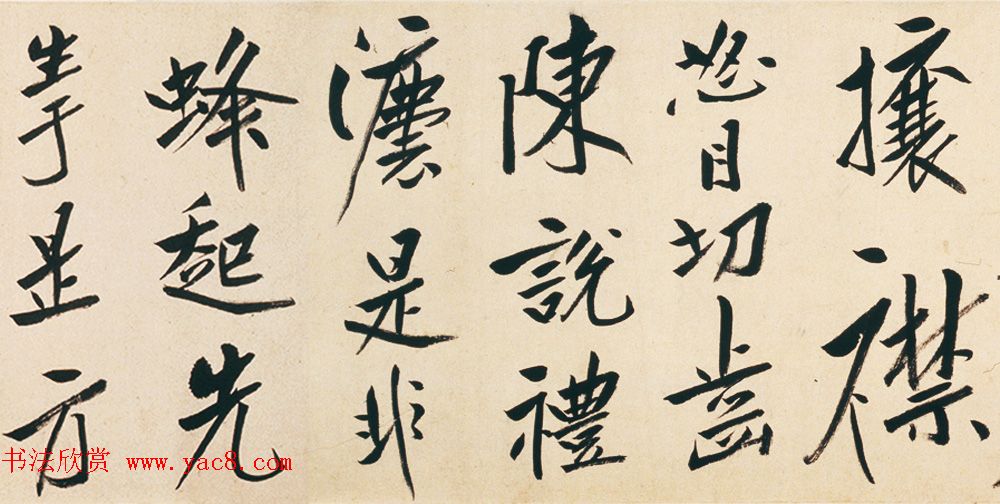 攘襟
怒目切齒
陳說禮
灋是非
蜂起先
生于昰方
书法欣赏 www.yac8.com